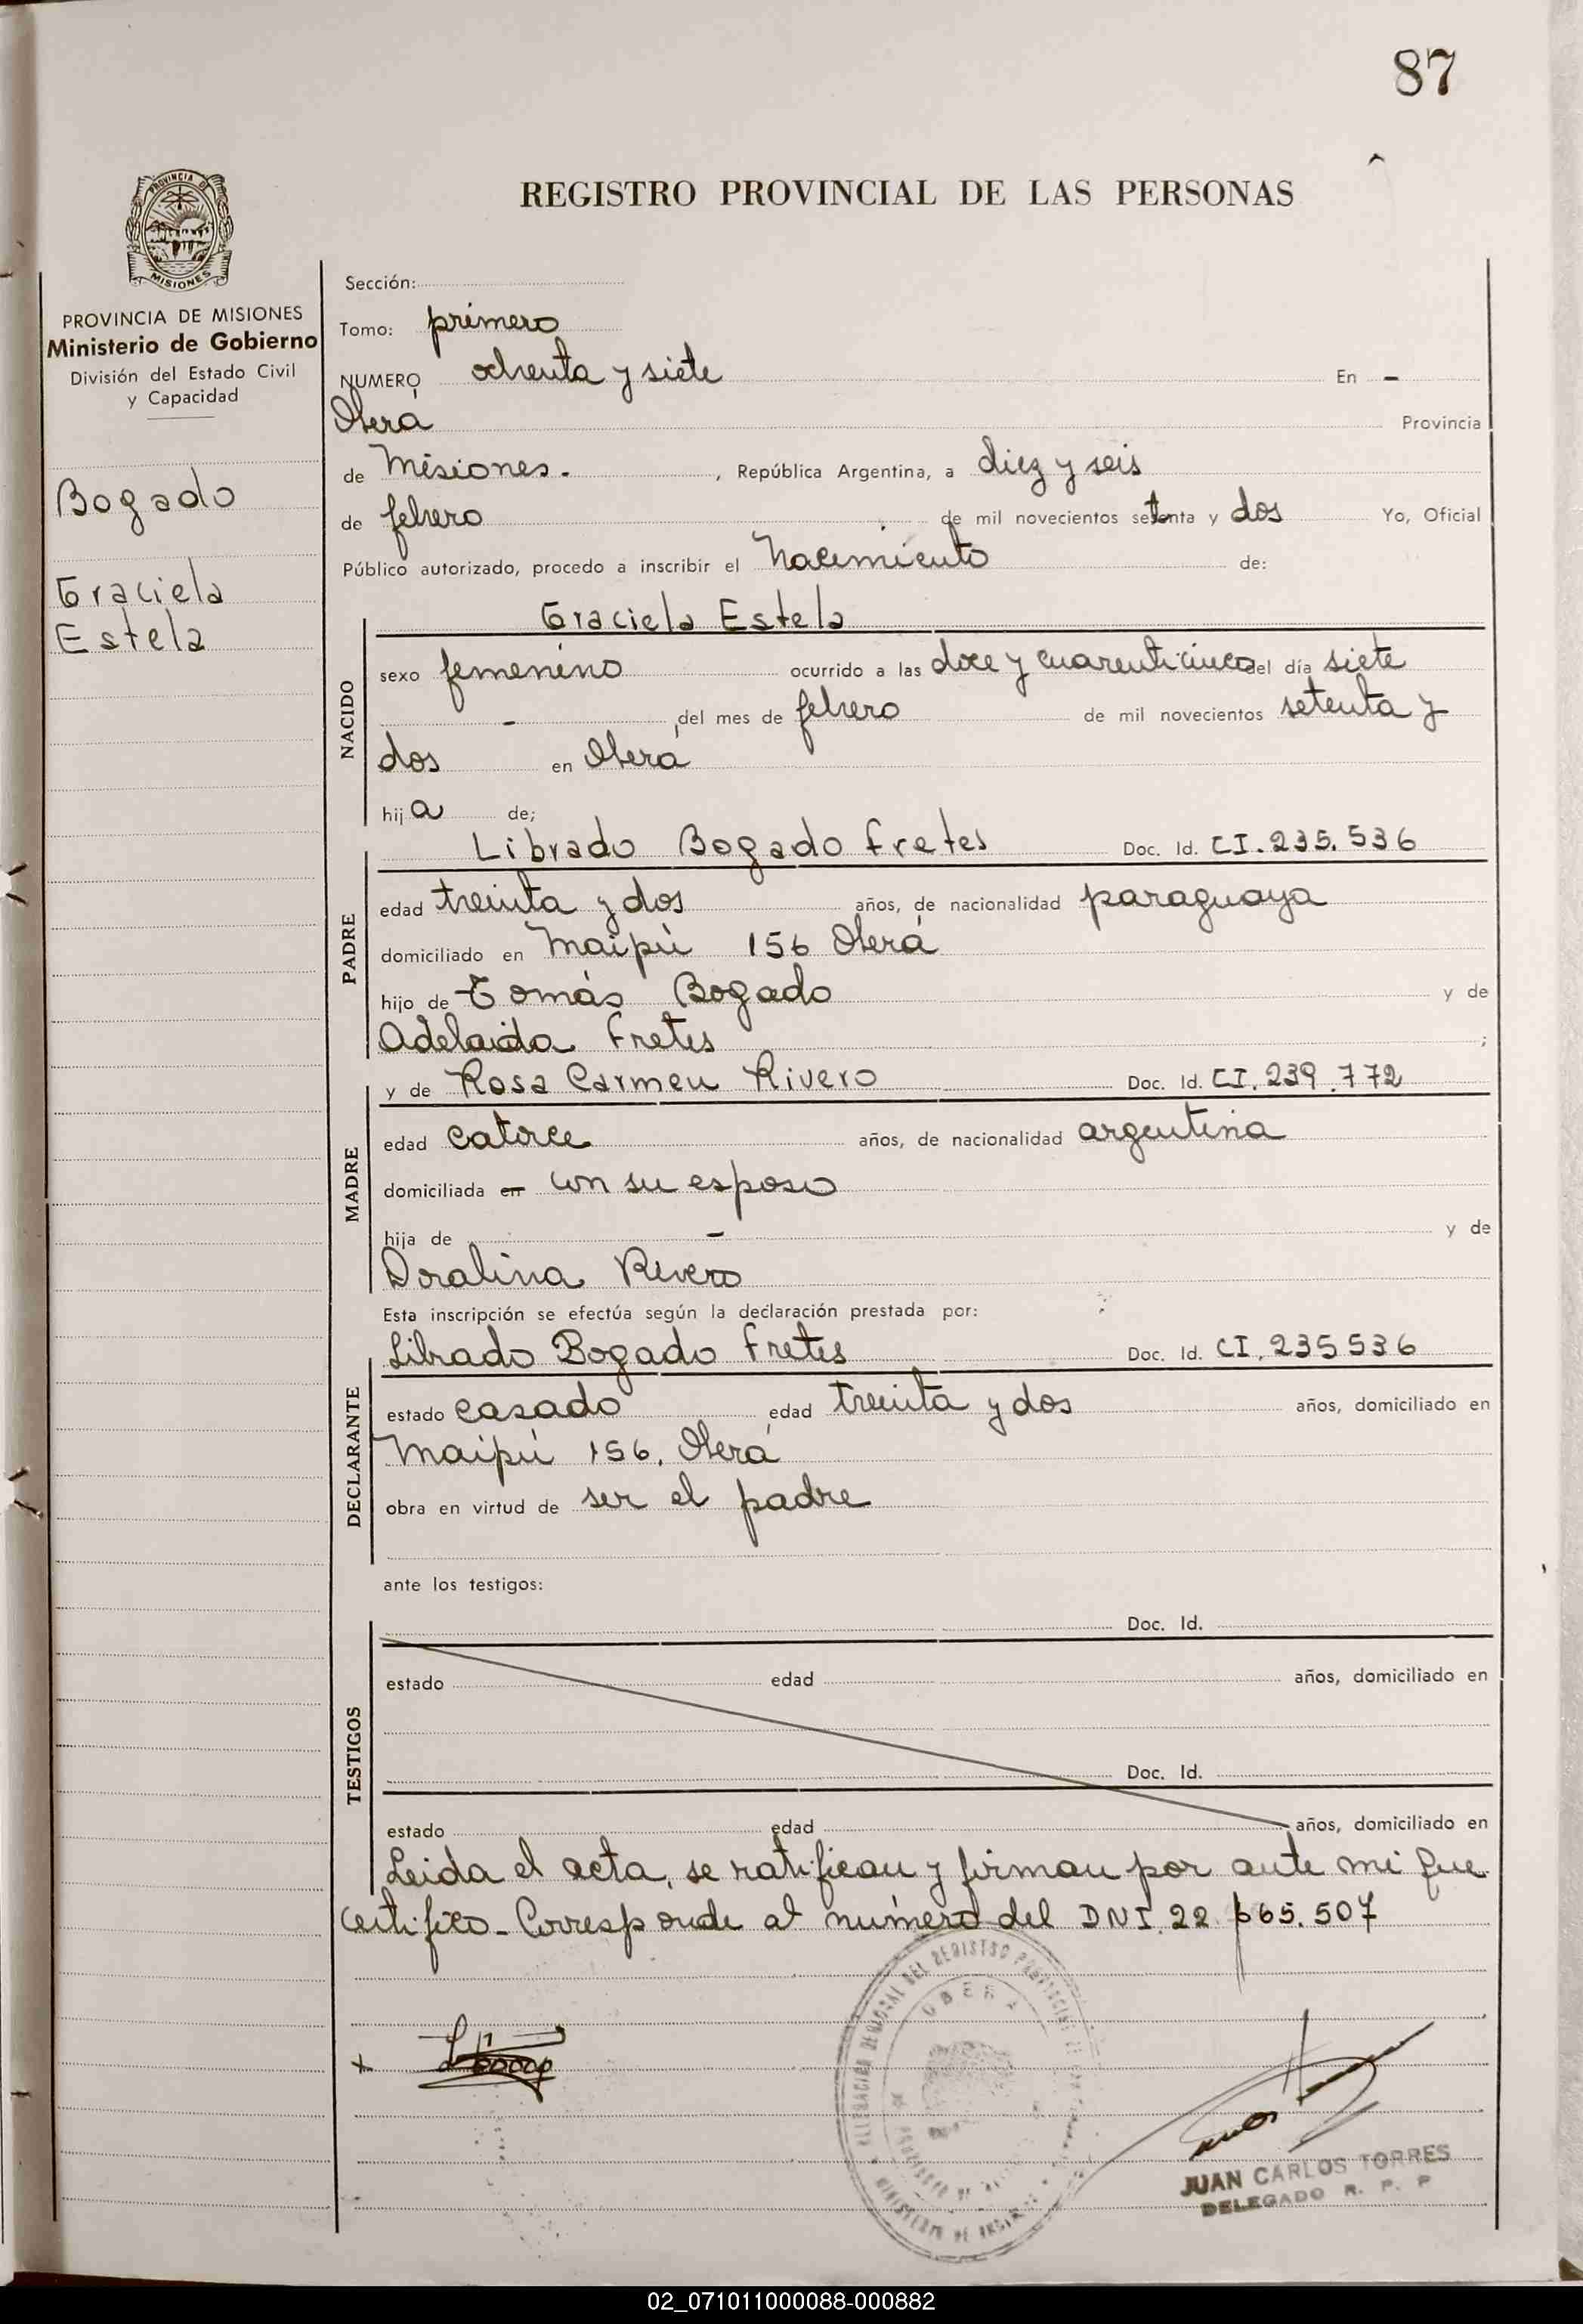 87
REGISTRO PROVINCIAL DE LAS PERSONAS
PROVINCIA DE
MISIONES
PROVINCIA DE MISIONES
Ministerio de Gobierno
División del Estado Civil
y Capacidad
Bogado
Graciela
Estela
Sección:
Tomo: primero
NUMERO ochenta y siete En -
Oberá Provincia
de Misiones. , República Argentina, a diez y seis
de febrero de mil novecientos setenta y dos Yo, Oficial
Público autorizado, procedo a inscribir el Nacimiento de:
Graciela Estela
NACIDO
sexo femenino ocurrido a las doce y cuarenticinco del día siete
- del mes de febrero de mil novecientos setenta y
dos en Oberá
hija de;
Librado Bogado Fretes Doc. Id. CI. 235.536
PADRE
edad treinta y dos años, de nacionalidad paraguaya
domiciliado en Maipú 156 Oberá
hijo de Tomás Bogado y de
Adelaida Fretes ;
y de Rosa Carmen Rivero Doc. Id. CI. 239.772
MADRE
edad catorce años, de nacionalidad argentina
domiciliada en con su esposo
hija de - y de
Doralina Rivero
Esta inscripción se efectúa según la declaración prestada por:
Librado Bogado Fretes Doc. Id. CI. 235536
DECLARANTE
estado casado edad treinta y dos años, domiciliado en
Maipú 156. Oberá
obra en virtud de ser el padre
ante los testigos:
Doc. Id.
TESTIGOS
estado edad años, domiciliado en
Doc. Id.
estado edad años, domiciliado en
Leida el acta, se ratifican y firman por ante mi que
certifico - Corresponde al número del DNI. 22.665.507
DELEGACIÓN REGIONAL DEL REGISTRO PROVINCIAL DE LAS
OBERA
MINISTERIO DE
JUAN CARLOS TORRES
DELEGADO R. P. P
02_071011000088-000882